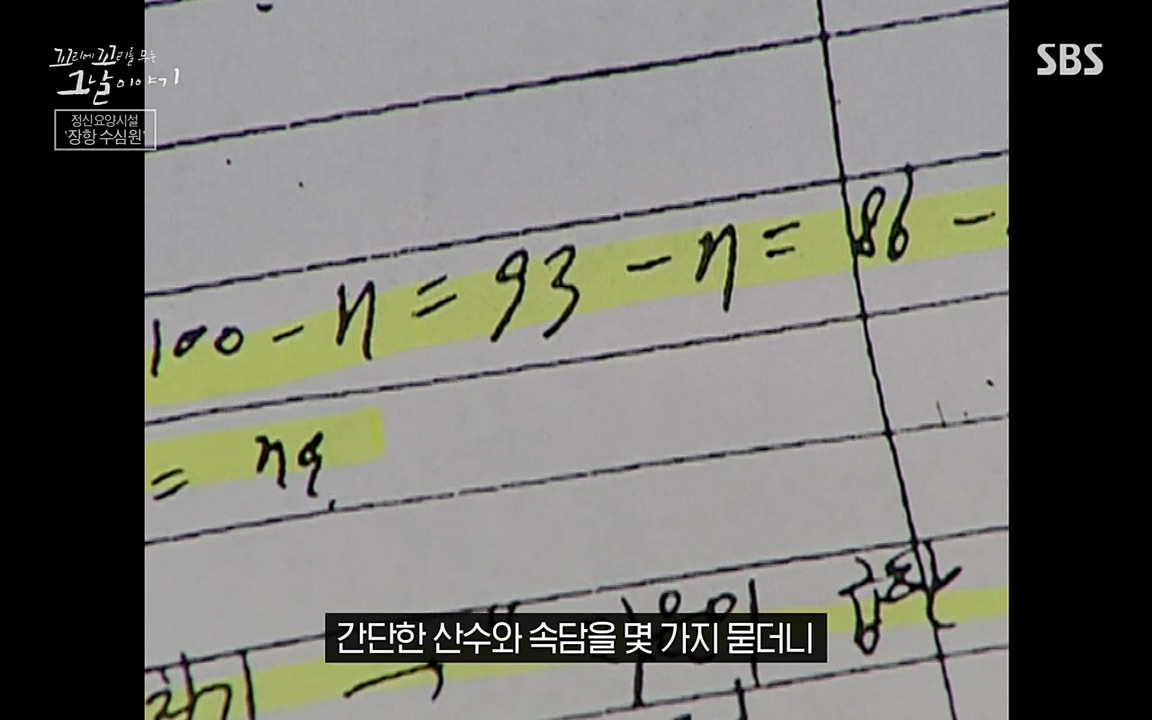 꼬리에 꼬리를 무는
그날 이야기
SBS
정신요양시설
'장항 수심원'
100 - 7 = 93 - 7 = 86 -
= 79
간단한 산수와 속담을 몇 가지 묻더니